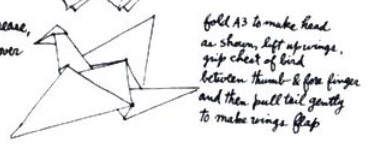 ease,
over
fold A3 to make head
as shown, lift up wings,
grip chest of bird
between thumb & fore finger
and then pull tail gently
to make wings flap